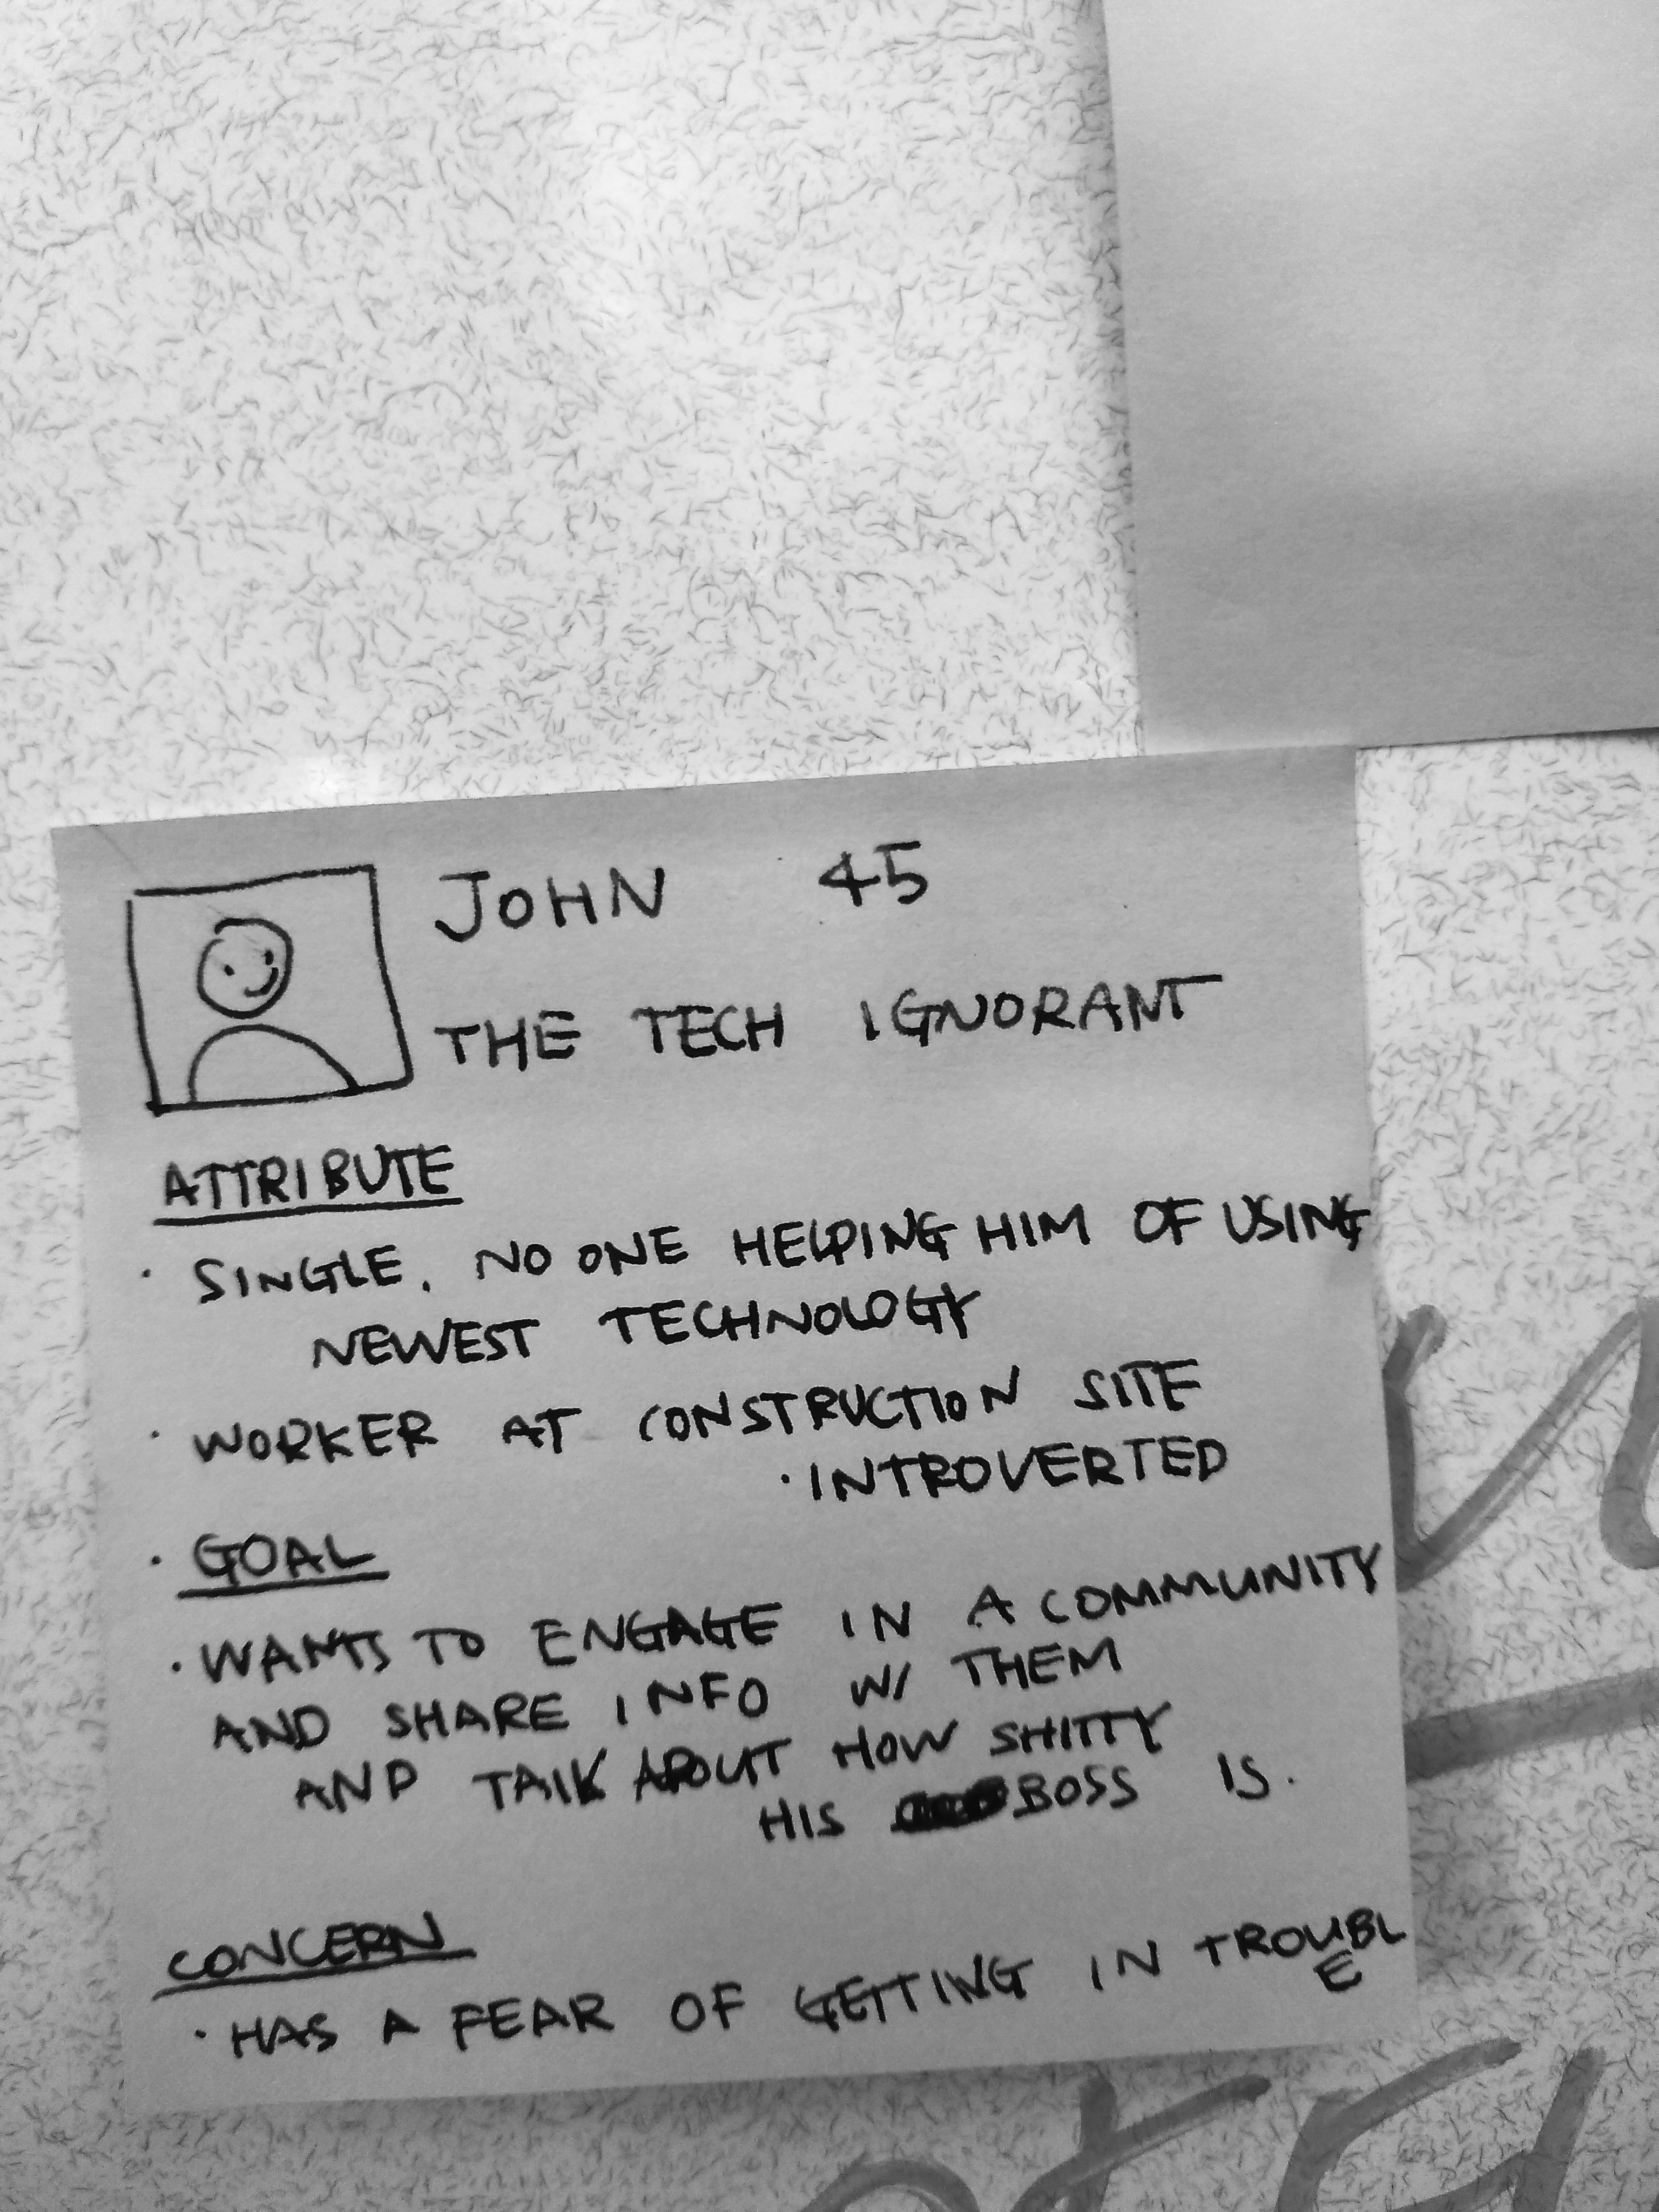 JOHN 45
THE TECH IGNORANT
ATTRIBUTE
· SINGLE. NO ONE HELPING HIM OF USING
NEWEST TECHNOLOGY
· WORKER AT CONSTRUCTION SITE
· INTROVERTED
· GOAL
· WANTS TO ENGAGE IN A COMMUNITY
AND SHARE INFO W/ THEM
AND TALK ABOUT HOW SHITTY
HIS BOSS IS.
CONCERN
· HAS A FEAR OF GETTING IN TROUBL
E